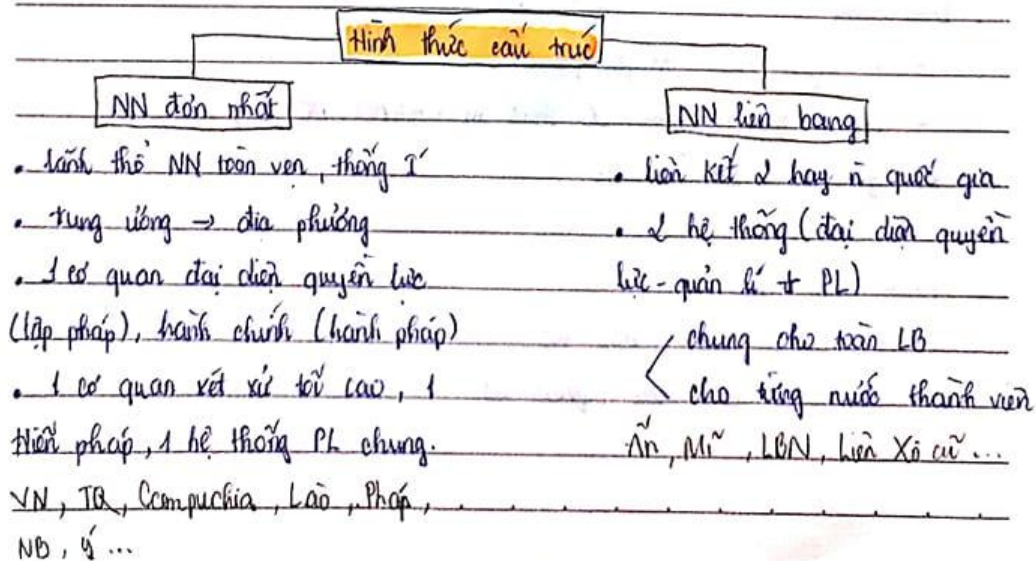 Hình thức cấu trúc
NN đơn nhất
• lãnh thổ NN toàn vẹn, thống I
• trung ương → địa phương
• 1 cơ quan đại diện quyền lực
(lập pháp), hành chính (hành pháp)
• 1 cơ quan xét xử tối cao, 1
Hiến pháp, 1 hệ thống PL chung.
VN, TQ, Campuchia, Lào, Pháp,
NB, ý...
NN liên bang
• liên kết 2 hay n quốc gia
• 2 hệ thống (đại diện quyền
lực - quản lí + PL)
chung cho toàn LB
cho từng nước thành viên
Ấn, Mĩ, LBN, Liên Xô cũ...